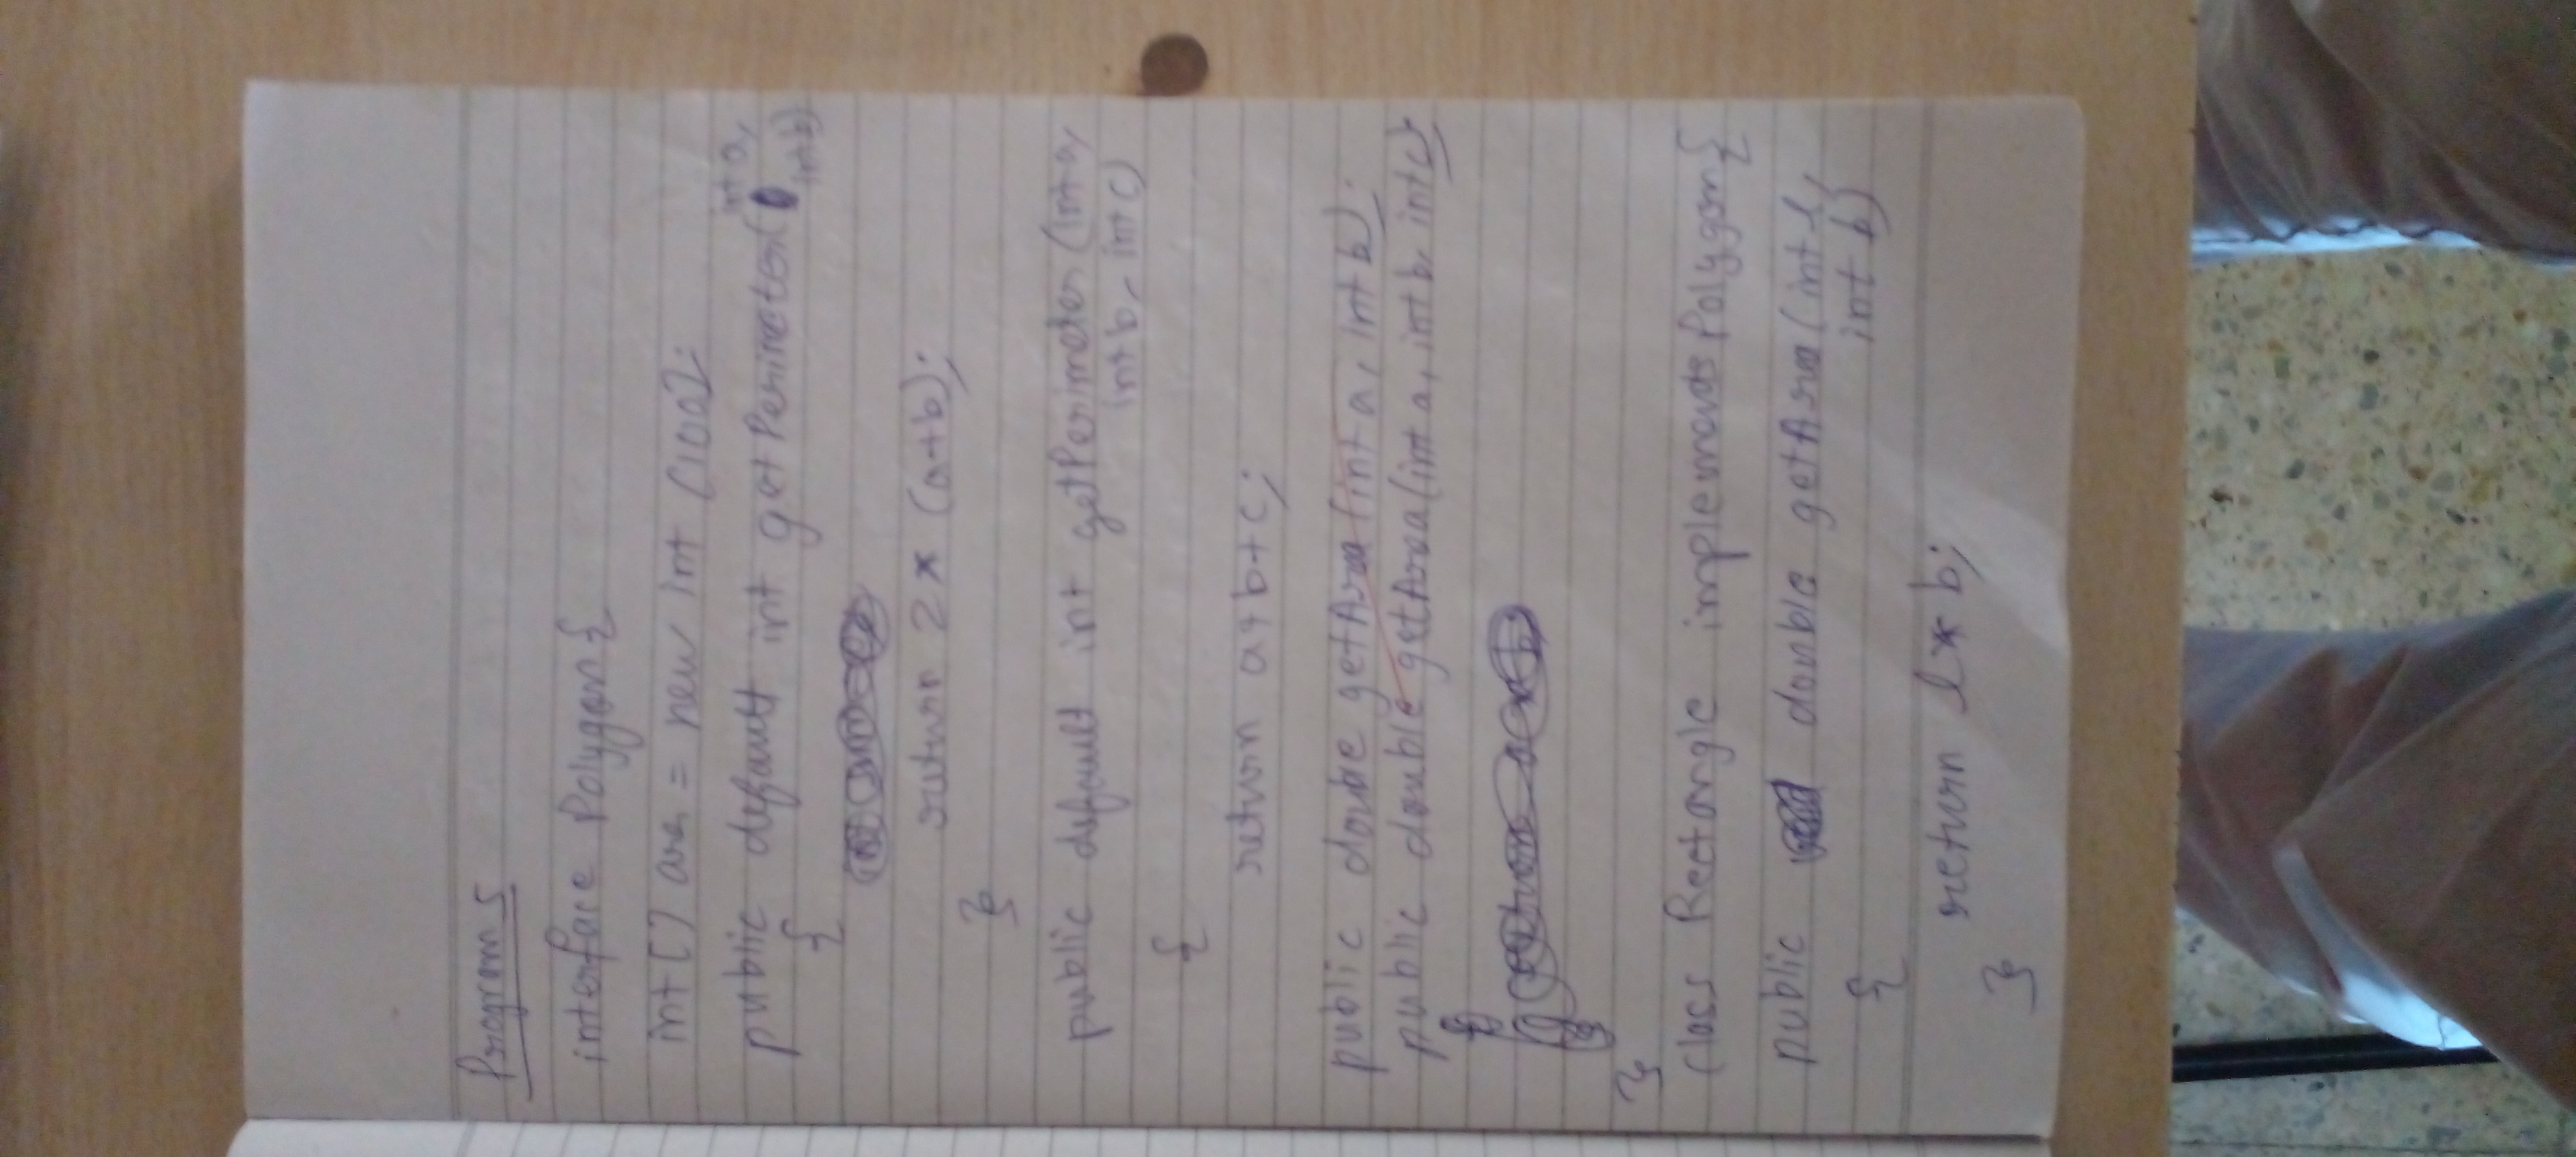 Program 5
interface Polygon{
int[] arr = new int [100];
public default int getPerimeter( int a,
int b)
{
return 2 * (a+b);
}
public default int getPerimeter (int a,
int b, int c)
{
return a+b+c;
public double getArea (int a, int b);
public double getArea(int a, int b, int c);
}
class Rectangle implements Polygon{
public double getArea (int l,
int b)
{
return l * b;
}